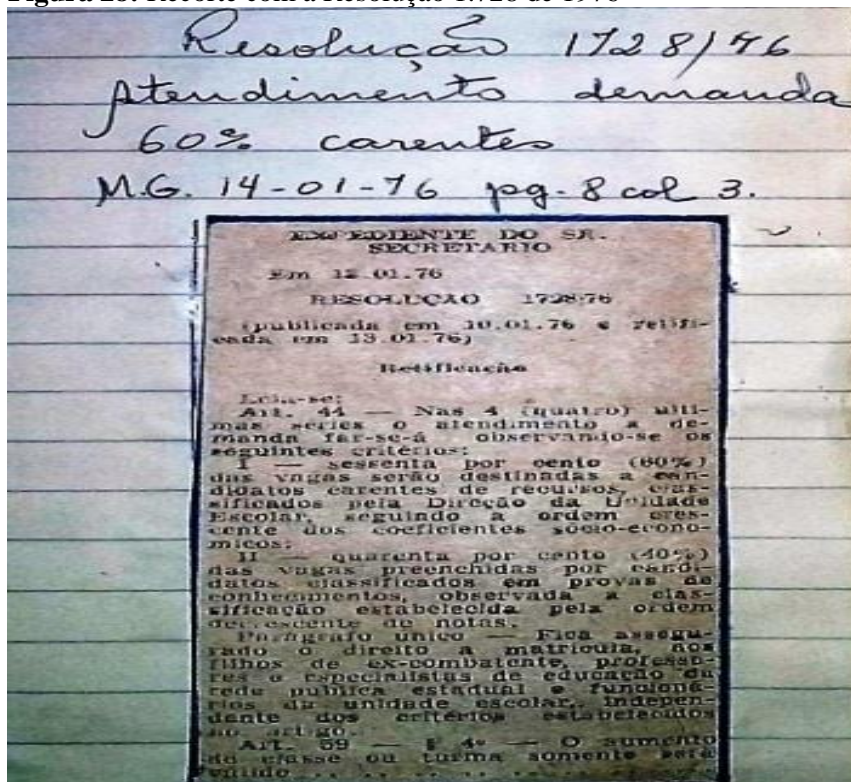 Resolução 1728/76
Atendimento demanda
60% carentes
M.G. 14-01-76 pg. 8 col 3.
EXPEDIENTE DO SR.
SECRETARIO
Em 12.01.76
RESOLUÇÃO 1728/76
(publicada em 10.01.76 e retifi-
cada em 13.01.76)
Retificação
Leia-se:
Art. 44 — Nas 4 (quatro) ulti-
mas series o atendimento a de-
manda far-se-á observando-se os
seguintes critérios:
I — sessenta por cento (60%)
das vagas serão destinadas a can-
didatos carentes de recursos, clas-
sificados pela Direção da Unidade
Escolar, seguindo a ordem cres-
cente dos coeficientes sócio-econo-
micos;
II — quarenta por cento (40%)
das vagas preenchidas por candi-
datos classificados em provas de
conhecimentos, observada a clas-
sificação estabelecida pela ordem
decrescente de notas.
Parágrafo único — Fica assegu-
rado o direito a matricula, aos
filhos de ex-combatente, professo-
res e especialistas de educação da
rede publica estadual e funcioná-
rios da unidade escolar, indepen-
dante dos critérios estabelecidos
no artigo.
Art. 59 — § 4º — O aumento
de classe ou turma somente será